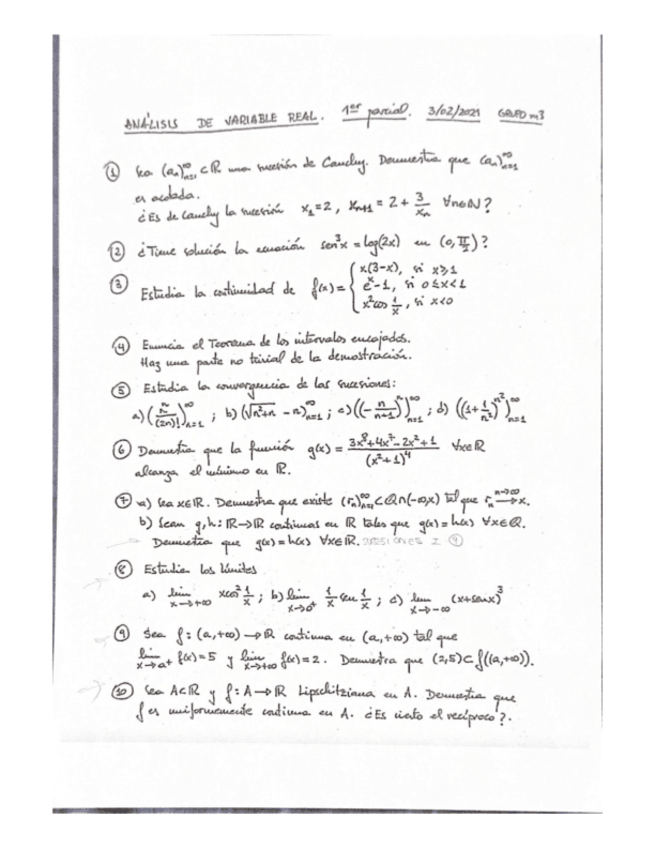 ANÁLISIS DE VARIABLE REAL. 1er parcial. 3/02/2021 GRUPO m3
① Sea (aₙ)ₙ₌₁^∞ ⊂ ℝ una sucesión de Cauchy. Demuestra que (aₙ)ₙ₌₁^∞
es acotada.
¿Es de Cauchy la sucesión x₁=2, xₙ₊₁ = 2 + 3/xₙ ∀n∈ℕ?
② ¿Tiene solución la ecuación sen³x = log(2x) en (0, π/2)?
③ Estudia la continuidad de f(x) = { x(3-x), si x≥1
eˣ-1, si 0≤x<1
x²cos 1/x, si x<0
④ Enuncia el Teorema de los intervalos encajados.
Haz una parte no trivial de la demostración.
⑤ Estudia la convergencia de las sucesiones:
a) (nⁿ/(2n)!)ₙ₌₁^∞ ; b) (√(n²+n) - n)ₙ₌₁^∞ ; c) ((-n/(n+1))ⁿ)ₙ₌₁^∞ ; d) ((1+1/n²)^(n²))ₙ₌₁^∞
⑥ Demuestra que la función g(x) = (3x⁸+4x⁷-2x²+1)/(x²+1)⁴ ∀x∈ℝ
alcanza el mínimo en ℝ.
⑦ a) Sea x∈ℝ. Demuestra que existe (rₙ)ₙ₌₁^∞ ⊂ ℚ∩(-∞,x) tal que rₙ → x. n→∞
b) Sean g,h: ℝ→ℝ continuas en ℝ tales que g(x) = h(x) ∀x∈ℚ.
Demuestra que g(x) = h(x) ∀x∈ℝ.
⑧ Estudia los límites
a) lim x→+∞ xcos² 1/x ; b) lim x→0⁺ 1/x sen 1/x ; c) lim x→-∞ (x+senx)³
⑨ Sea f: (a,+∞) → ℝ continua en (a,+∞) tal que
lim x→a⁺ f(x) = 5 y lim x→+∞ f(x) = 2. Demuestra que (2,5) ⊂ f((a,+∞)).
⑩ Sea A⊂ℝ y f: A→ℝ Lipschitziana en A. Demuestra que
f es uniformemente continua en A. ¿Es cierto el recíproco?.